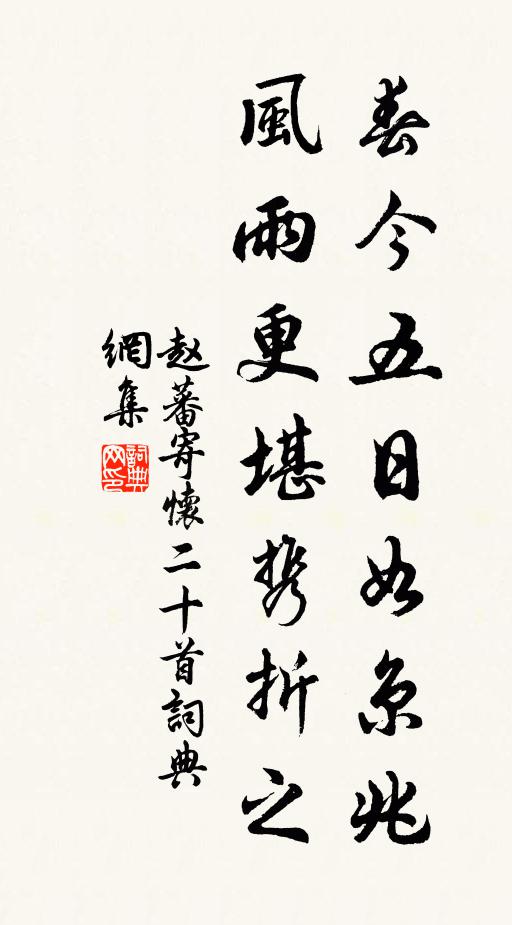 春今五日如京兆
風雨更堪携折之
赵蕃寄懷二十首詞典
網集
詞典
网印